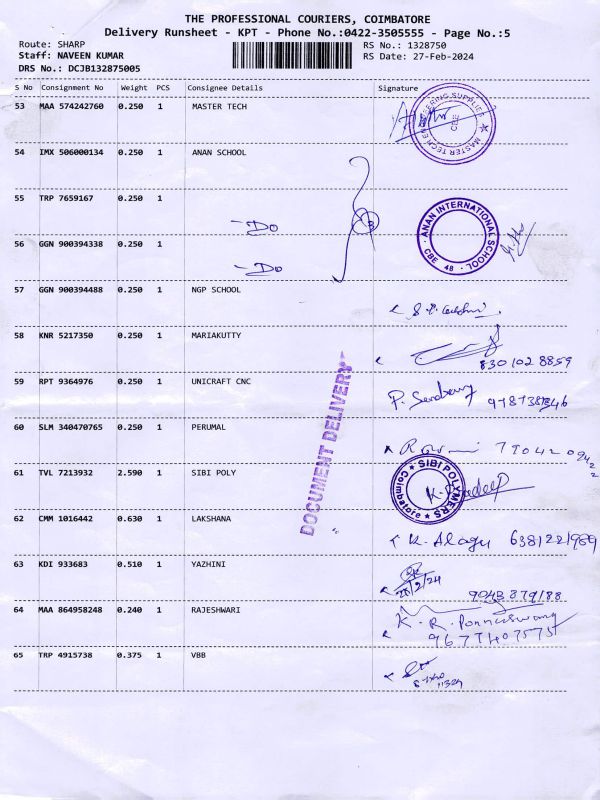 THE PROFESSIONAL COURIERS, COIMBATORE
Delivery Runsheet - KPT - Phone No.:0422-3505555 - Page No.:5
Route: SHARP RS No.: 1328750
Staff: NAVEEN KUMAR RS Date: 27-Feb-2024
DRS No.: DCJB132875005
S No Consignment No Weight PCS Consignee Details Signature
53 MAA 574242760 0.250 1 MASTER TECH
MASTER TECH ENGINEERING SUPPLIES CBE
54 IMX 506000134 0.250 1 ANAN SCHOOL
55 TRP 7659167 0.250 1
-Do
ANAN INTERNATIONAL SCHOOL CBE 48
56 GGN 900394338 0.250 1
-Do
57 GGN 900394488 0.250 1 NGP SCHOOL
58 KNR 5217350 0.250 1 MARIAKUTTY
830102 8859
59 RPT 9364976 0.250 1 UNICRAFT CNC
DOCUMENT DELIVERY
60 SLM 340470765 0.250 1 PERUMAL
61 TVL 7213932 2.590 1 SIBI POLY
SIBI POLYMERS Coimbatore
62 CMM 1016442 0.630 1 LAKSHANA
K. Alagu
63 KDI 933683 0.510 1 YAZHINI
64 MAA 864958248 0.240 1 RAJESHWARI
65 TRP 4915738 0.375 1 VBB